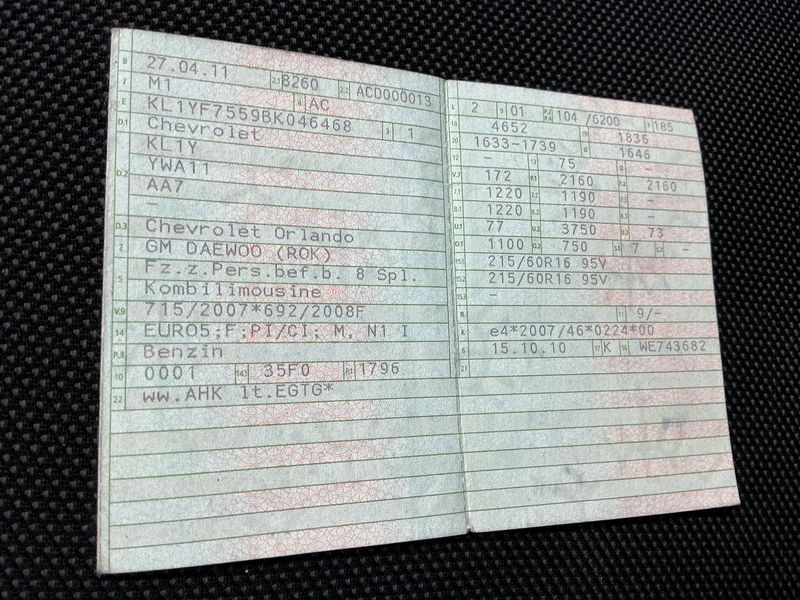 B 27.04.11 2.1 8260 2.2 ACD000013
J M1 4 AC
E KL1YF7559BK046468 3 1
D.1 Chevrolet
D.2 KL1Y
YWA11
AA7
–
D.3 Chevrolet Orlando
2 GM DAEWOO (ROK)
5 Fz.z.Pers.bef.b. 8 Spl.
Kombilimousine
V.9 715/2007*692/2008F
14 EURO5;F;PI/CI; M, N1 I
P.3 Benzin
10 0001 14.1 35F0 P.1 1796
22 ww.AHK lt.EGTG*
L 2 9 01 P.2 P.4 104 /6200 T 185
18 4652 19 1836
20 1633-1739 G 1646
12 – 13 75 Q –
V.7 172 F.1 2160 F.2 2160
7.1 1220 7.2 1190 –
8.1 1220 8.2 1190 –
U.1 77 U.2 3750 U.3 73
O.1 1100 O.2 750 S.1 7 S.2 –
15.1 215/60R16 95V
15.2 215/60R16 95V
15.3 –
R 11 9/–
K e4*2007/46*0224*00
6 15.10.10 17 K 16 WE743682
21